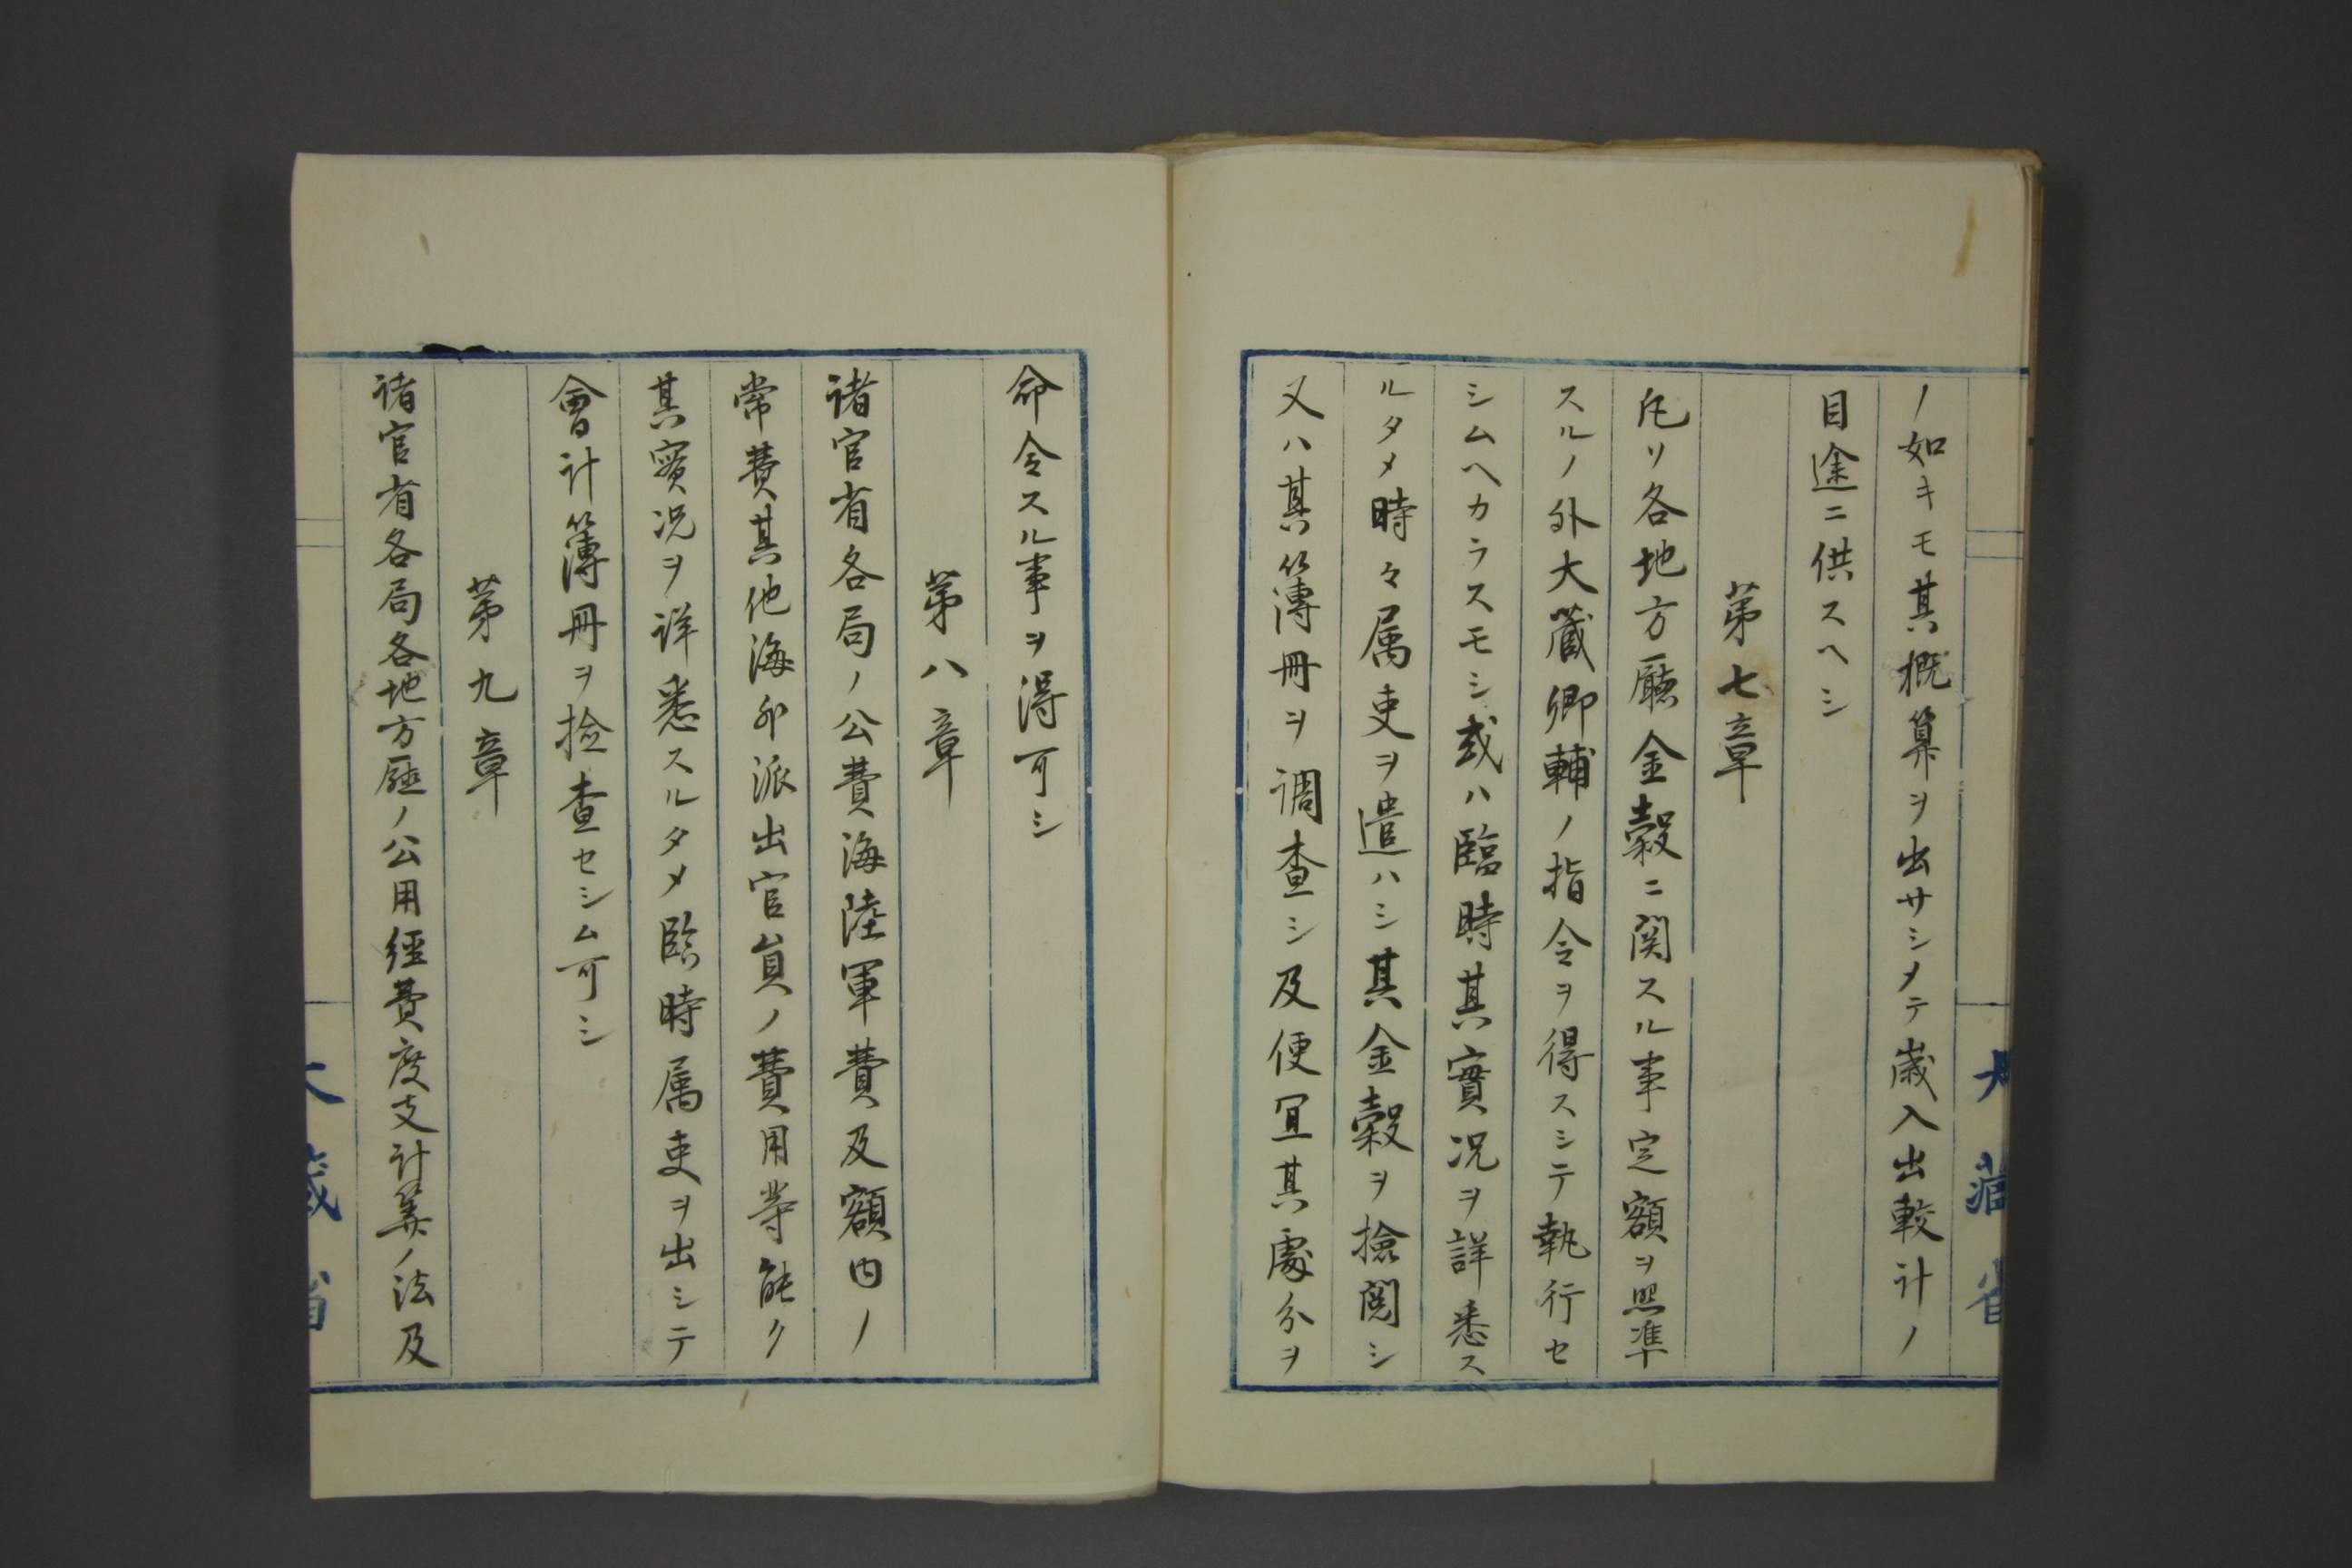 ノ如キモ其概算ヲ出サシメテ歳入出較計ノ
目途ニ供スヘシ
第七章
凡ソ各地方廳金穀ニ関スル事定額ヲ照準
スルノ外大蔵卿輔ノ指令ヲ得スシテ執行セ
シムヘカラスモシ或ハ臨時其實况ヲ詳悉ス
ルタメ時々属吏ヲ遣ハシ其金穀ヲ撿閲シ
又ハ其簿冊ヲ調查シ及便宜其處分ヲ
命令スル事ヲ得可シ
第八章
諸官省各局ノ公費海陸軍費及額内ノ
常費其他海外派出官員ノ費用等能ク
其實况ヲ詳悉スルタメ臨時属吏ヲ出シテ
會計簿冊ヲ撿查セシム可シ
第九章
諸官省各局各地方廳ノ公用經費度支計算ノ法及
大蔵省
大藏省